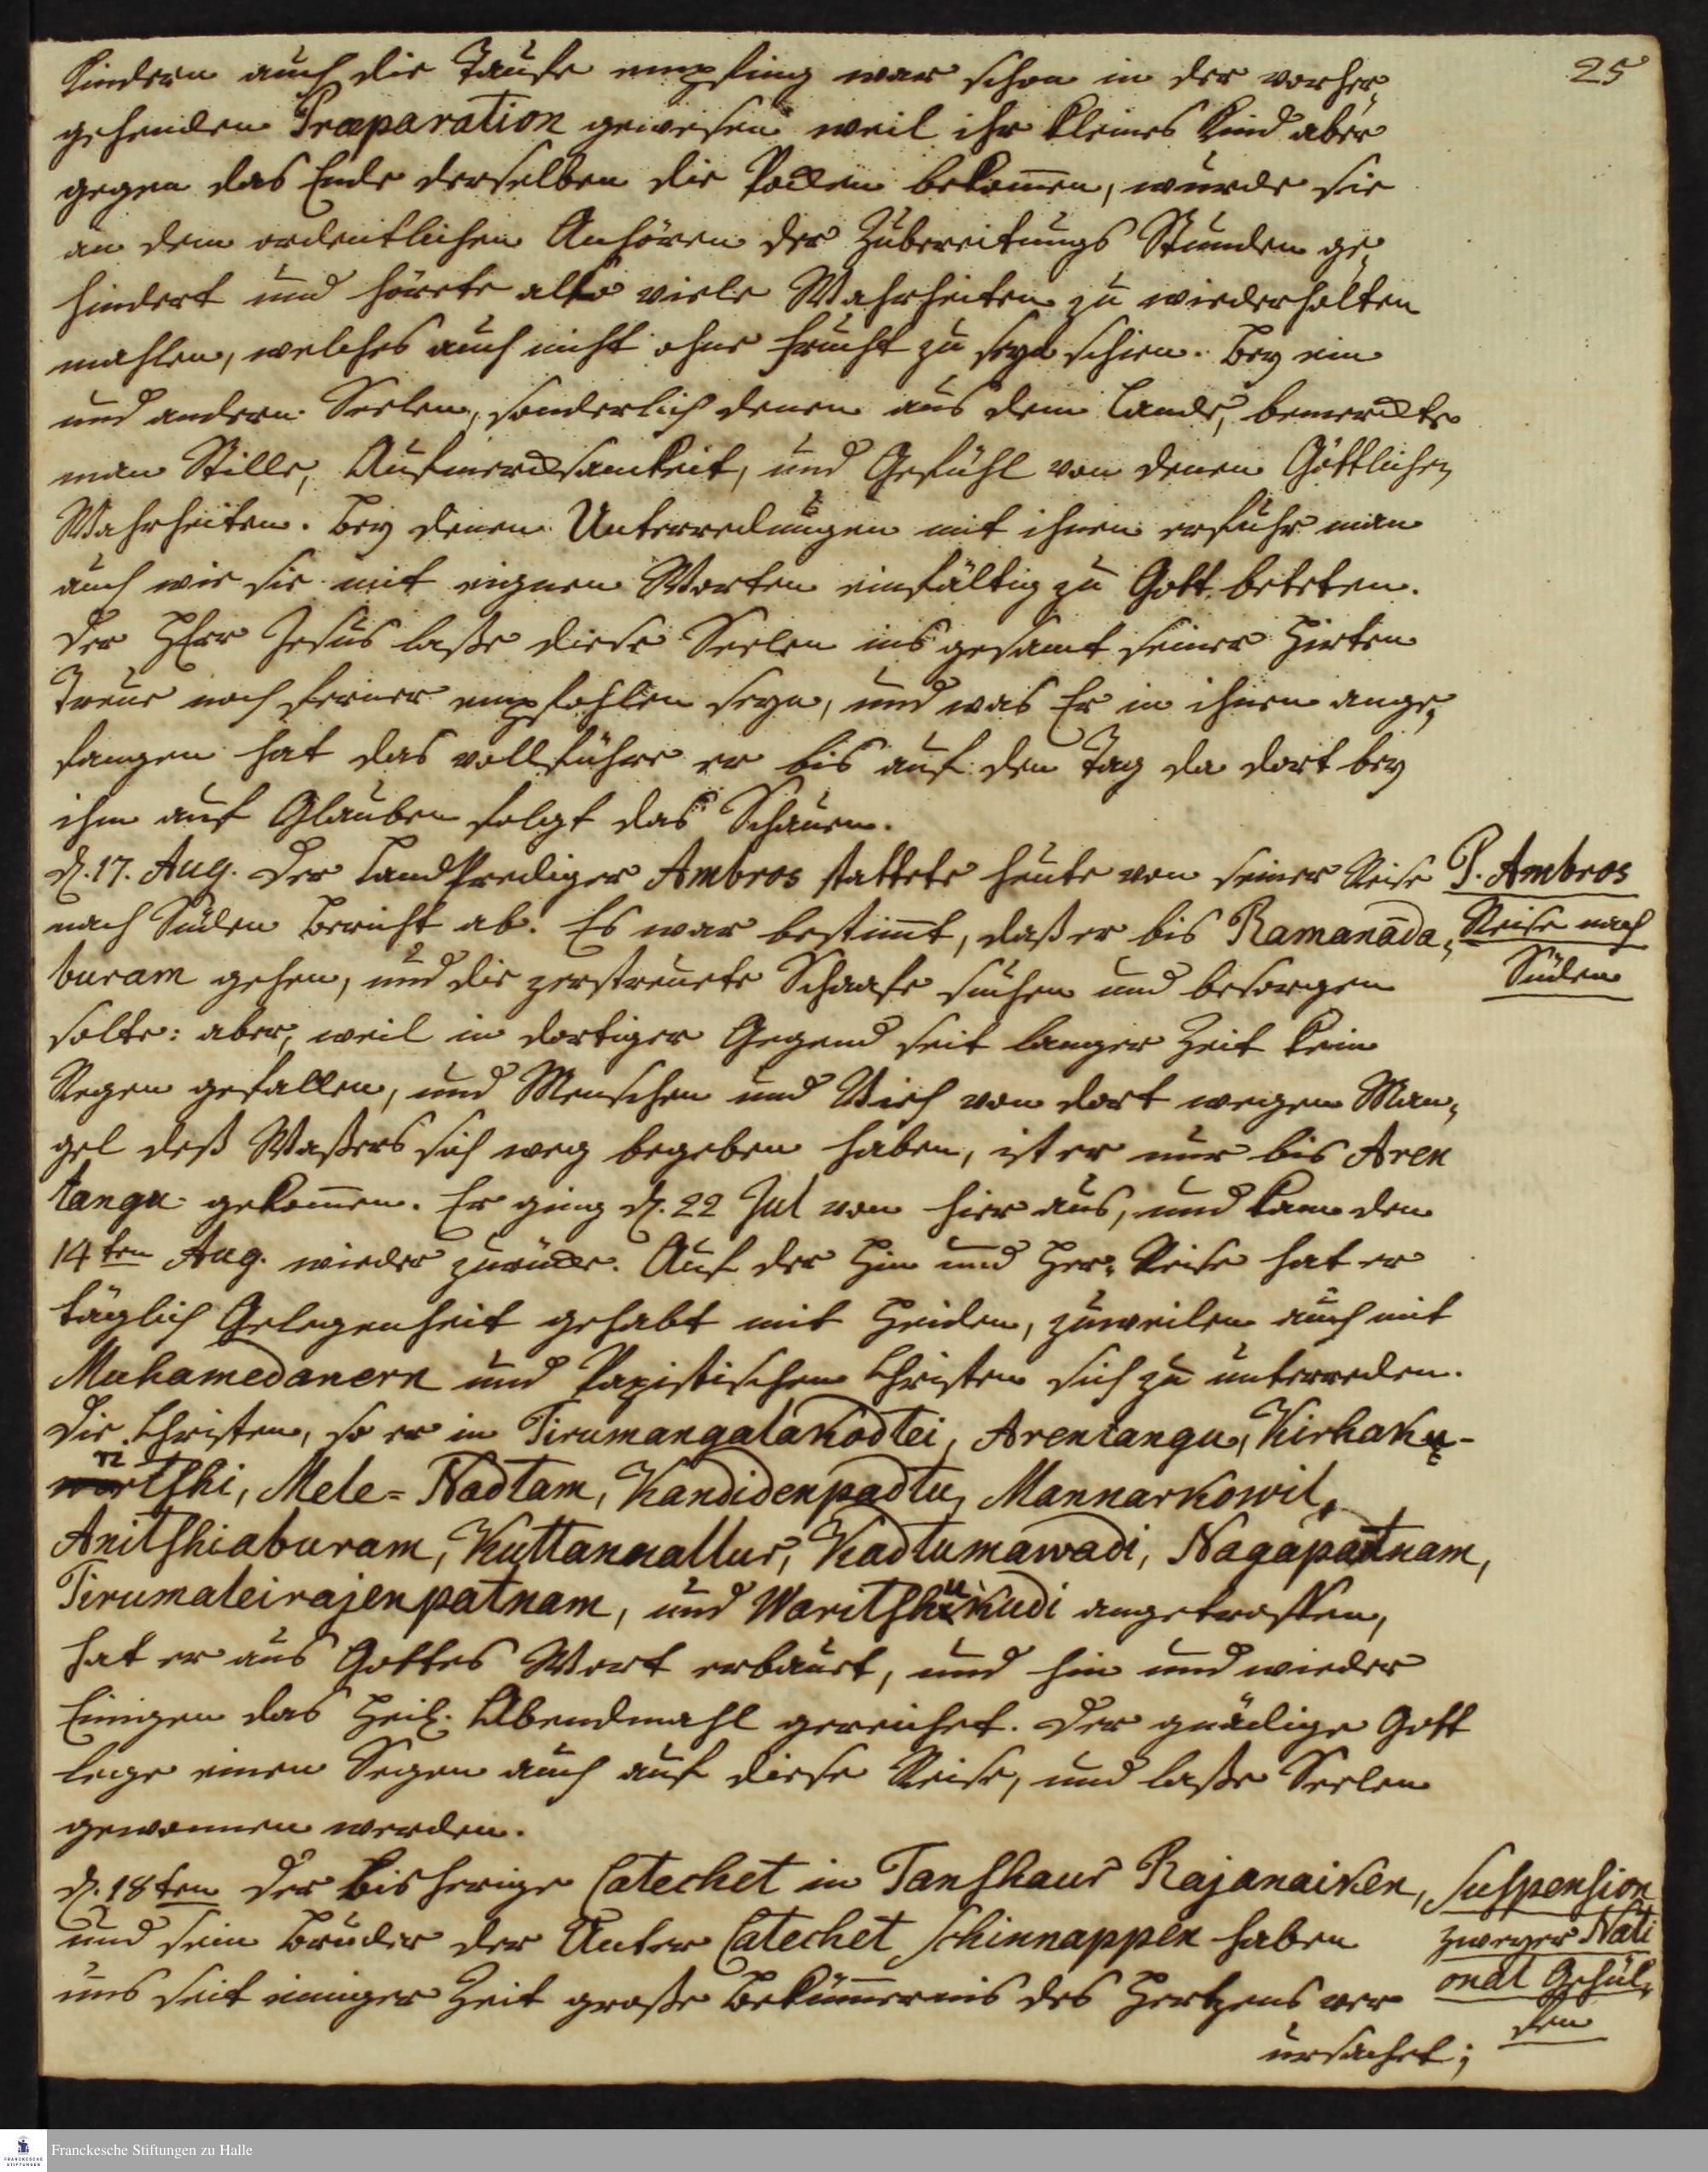 25
Kindern auch die Taufe empfing war schon in der vorher„
gehenden Praeparation gewesen weil ihr kleines Kind aber
gegen das Ende derselben die Pocken bekom̄en, wurde sie
an dem ordentlichen Anhören der Zubereitungs Stunden ge„
hindert und hörete also viele Wahrheiten zu wiederholten
mahlen, welches auch nicht ohne Frucht zu seyn schien. Bey ein
und andern Seelen, sonderlich denen aus dem Lande, bemerckte
man Stille, Aufmercksamkeit, und Gefühl von denen Göttlichen
Wahrheiten. Bey denen Unterredungen mit ihnen erfuhr man
auch wie sie mit eignen Worten einfältig zu Gott beteten.
Der HErr Jesus laße diese Seelen ins gesamt seiner Hirten
Treue noch ferner empfohlen seyn, und was Er in ihnen ange„
fangen hat das vollführe er bis auf den Tag da dort bey
ihm auf Glauben folgt das Schauen.
d. 17. Aug. Der Landprediger Ambros stattete heute von seiner Reise
nach Süden Bericht ab. Es war bestim̄t, daß er bis Ramanāda„
buram gehen, und die zerstreuete Schaafe suchen und besorgen
solte: aber, weil in dortiger Gegend seit langer Zeit kein
Regen gefallen, und Menschen und Vieh von dort wegen Man„
gel deß Waßers sich weg begeben haben, ist er nur bis Aren
tangu gekom̄en. Er ging d. 22 Jul von hier aus, und kam den
14ten Aug. wieder zurück. Auf der Hin und Her„ Reise hat er
täglich Gelegenheit gehabt mit Heiden, zuweilen auch mit
Muhamedanern und Papistischen Christen sich zu unterreden.
Die Christen, so er in Tirumangalakodtei, Arentangu, Kirhaku-
ritshi, Mele=Nadtam, Kandidenpadtu, Mannarkowil,
Anitshiaburam, Kuttannallur, Kadtumawadi, Nagapatnam,
Tirumaleirajenpatnam, und Waritshukudi angetroffen,
hat er aus Gottes Wort erbauet, und hin und wieder
Einigen das Heil. Abendmahl gereichet. Der gnädige Gott
lege einen Segen auch auf diese Reise, und laße Seelen
gewonnen werden.
d. 18ten Der bisherige Catechet in Tanshaur Rajanaiken,
und sein Bruder der Unter Catechet Schinnappen haben
uns seit einiger Zeit große Bekümmernis des Hertzens ver
ursachet;
P. Ambros
Reise nach
Süden
Suspension
zweyer Nati
onal Gehül„
fen
Franckesche Stiftungen zu Halle
FRANCKESCHE
STIFTUNGEN